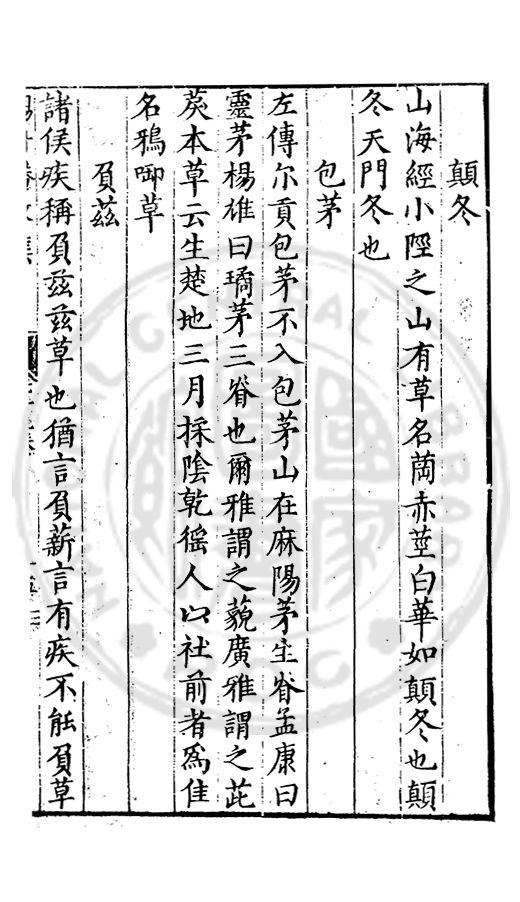 顛冬
山海經小陘之山有草名䔄赤莖白華如顛冬也顛
冬天門冬也
包茅
左傳尔貢包茅不入包茅山在麻陽茅生脊孟康曰
靈茅楊雄曰璚茅三脊也爾雅謂之藐廣雅謂之茈
䓞本草云生楚地三月採陰乾徭人以社前者為佳
名鴉啣草
負茲
諸侯疾稱負茲茲草也猶言負薪言有疾不能負草